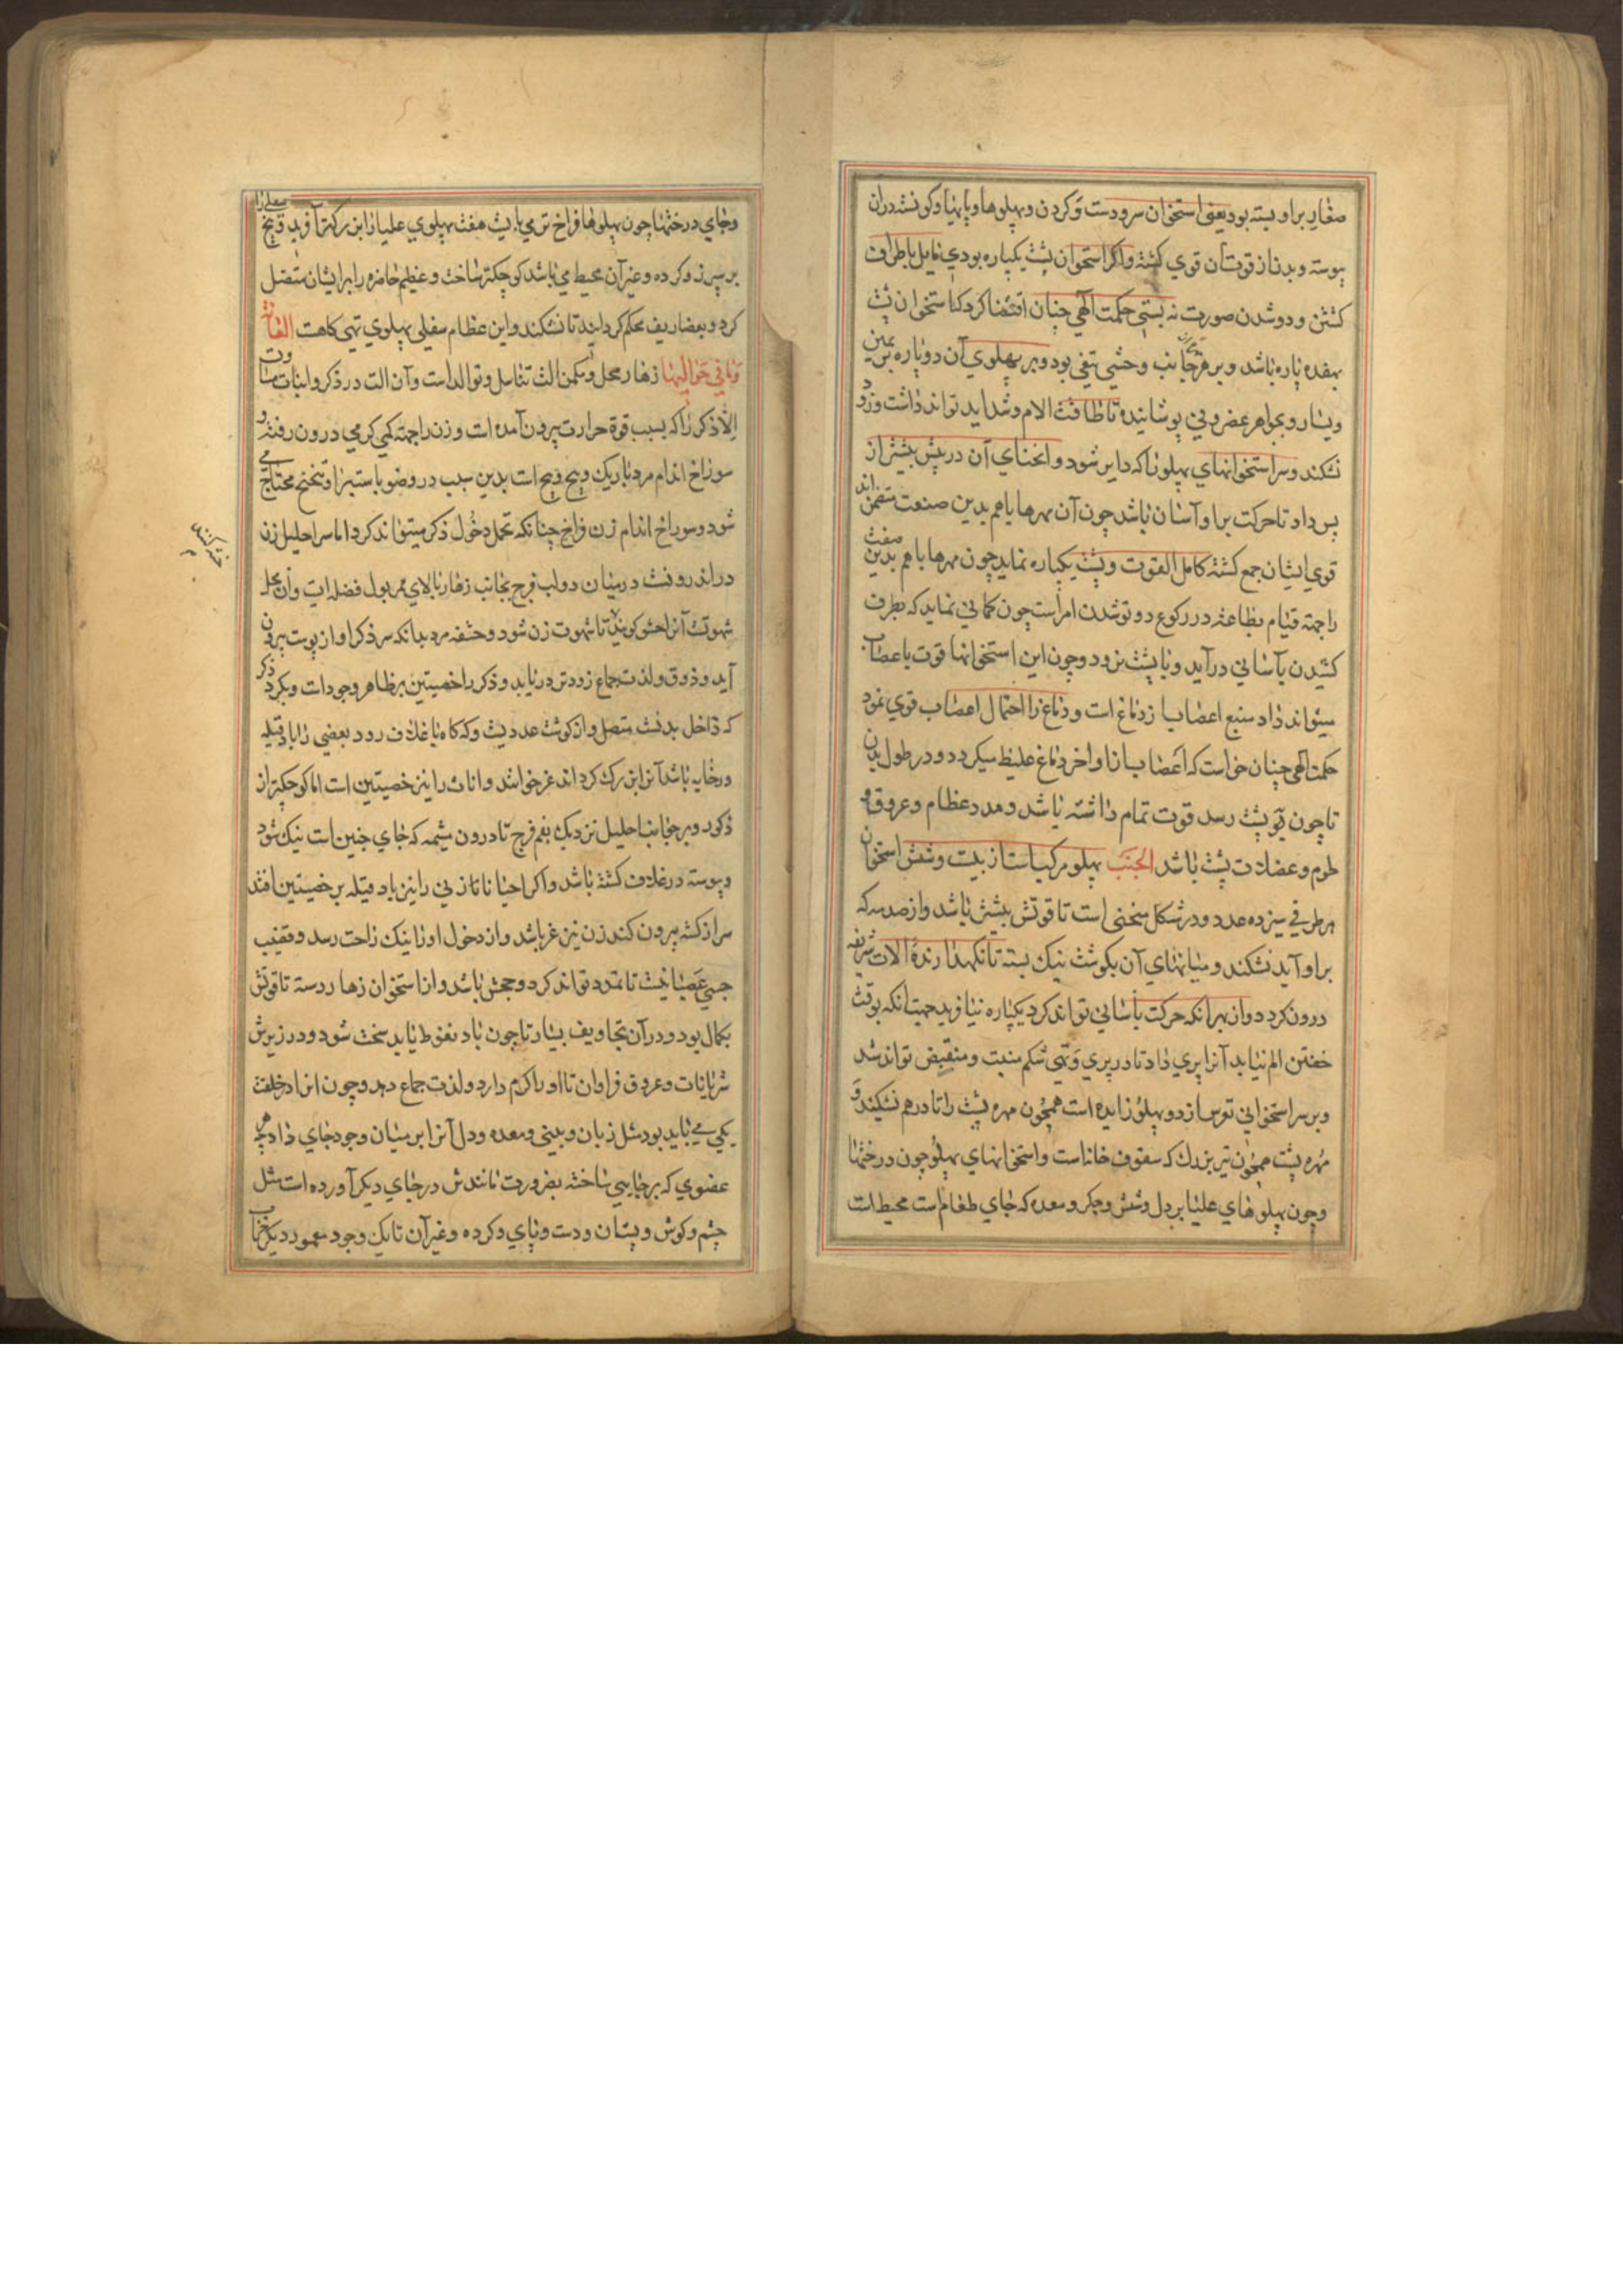 صغار بر او بسته بود یعنی استخوان سر و دست و کردن و پهلوها و پایها و کوشت در آن
پیوسته و بدن از قوت آن قوی کشته و اکر استخوان پشت یکپاره بودی مایل باطراف
کشتن و دو شدن صورت نه بستی حکمت الهی چنان اقتضا کرد که استخوان پشت
هفده پاره باشد و بر هر جانب وحشی تیغی بود و بر پهلوی آن دو پاره بر یمین
ویسار و بجواهر غضروفی پوشانیده تا طاقت آلام و شداید تواند داشت و زود
نشکند و سر استخوانهای پهلو را که دایر شود و انحنای آن در پیش بیشتر از
پس داد تا حرکت بر او آسان باشد چون آن مهرها با هم بدین صنعت متضمن اند
قوی ایشان جمع کشته کامل القوت و پشت یکپاره نماید چون مهرها با هم بدین صفت
راجهة قیام بطاعت در رکوع دو تو شدن امر است چون کمانی نماید که بطرف
کشیدن بآسانی در آید و با پشت نرود و چون این استخوانها قوت باعصاب
میتواند داد منبع اعصاب از دماغ است و دماغ را احتمال اعصاب قوی نمود
حکمت الهی چنان خواست که اعصاب از اواخر دماغ غلیظ میکردد و در طول بدن
تا چون توی پشت رسد قوت تمام داشته باشد و مدد عظام و عروق و
لحوم و عضلات پشت باشد الجنب پهلو مرکب است از بیست و شش استخوان
هر طرفی سیزده عدد و در شکل منحنی است تا قوتش بیشتر باشد و از صدمه که
بر او آید نشکند و میانهای آن بکوشت نیک بسته تا نکهدارنده آلات شریفه
درون کردد و از بهر آنکه حرکت بآسانی تواند کرد یکپاره نیافرید جهت آنکه بوقت
خفتن الم نیابد آنرا پری داد تا در پری و تهی شکم منبسط و منقبض تواند شد
و بر سر استخوانی توس از دو پهلو زایده است همچون مهره پشت را تا در هم نشکند و
مهره پشت همچون تیر بزرک که سقوف خانهاست و استخوانهای پهلو چون درختها
و چون پهلوهای علیا بر دل و شش و جکر و معده که جای طعام است محیط است
وجای درختها چون پهلوها فراخ تر می بایست هفت پهلوی علیا را بزرکتر آفرید و پنج سفلی را
بر سپرز و کرده و غیر آن محیط می باشد کوچکتر ساخت و عظیم خامزه را بر ایشان متصل
کرد و بغضاریف محکم کردانید تا نشکند و این عظام سفلی پهلوی تهی کاهست العانة
وما فی حوالیها زهار محل و مکمن آلت تناسل و توالد است و آن آلت در ذکر و اناث مساوات
الا ذکر را که بسبب قوة حرارت بیرون آمده است و زن را جهة کمی کرمی درون رفته و
سوراخ اندام مرد باریک و پیچ پیچ است بدین سبب در وضو باستبرا و تنحنح محتاج می
شود و سوراخ اندام زن فراخ چنانکه تحمل دخول ذکر میتواند کرد اما سر احلیل زن
در اندرونست در میان دو لب فرج بجانب زهار بالای ممر بول فضله ایست و آن محل
شهوتست آنرا حشو کویند تا شهوت زن شود و حشفه مرد بدانکه سر ذکر او از پوست بیرون
آید و ذوق و لذت جماع زودتر دریابد و ذکر را خصیتین بر ظاهر وجود است و بکرد ذکر
که داخل بدنست متصل و از کوشت عددیست و که کاه باغلاف رود بعضی را باد فتیله
در خایه باشد آنرا بزرک کرداند غر خوانند و اناث را نیز خصیتین است اما کوچکتر از
ذکور و بر جوانب احلیل نزدیک بفم فرج تا درون مشیمه که جای جنین است نیک شود
و پیوسته در غلاف کشته باشد و اکر احیانا تازنی را نیز باد فتیله بر خصیتین افتد
سر از کشه بیرون کند زن نیز غر باشد و از دخول او را نیک راحت رسد و قضیب
جسمی عصبانیست تا تمدد تواند کرد و حجمش باشد و از استخوان زهار رسته تا قوتش
بکمال بود و در آن تجاویف بسیار تا چون باد نعوظ یابد سخت شود و در زیرش
شریانات و عروق فراوان تا او را کرم دارد و لذت جماع دهد و چون انرا در خلقت
یکی می باید بود مثل زبان و بینی و معده و دل آنرا بر میان وجود جای داد هر
عضوی که بر جایی ساخته بضرورت مانندش در جای دیکر آورده است مثل
چشم و کوش و پستان و دست و پای و کرده و غیر آن تا یک وجود معمور دیکر